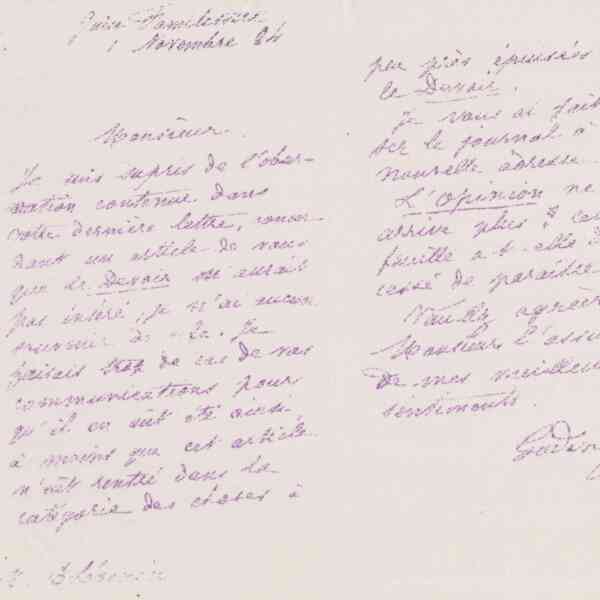 Guise Familistère
1 Novembre 84
Monsieur.
Je suis supris de l'obser-
vation contenue dans
votre dernière lettre, concer-
nant un article de vous
que le Devoir n'aurait
pas inséré, je n'ai aucun
souvenir de cela. Je
faisais trop de cas de vos
communications pour
qu'il en eût été ainsi
à moins que cet article
n'eût rentré dans la
catégorie des choses à
peu près épuisées
le Devoir.
Je vous ai fait
ser le journal à
nouvelle adresse.
L'Opinion ne
arrive plus ; ce
feuille a-t-elle
cessé de paraître
Veuillez agréer
Monsieur l'assu
de mes meilleur
sentiments.
Godin